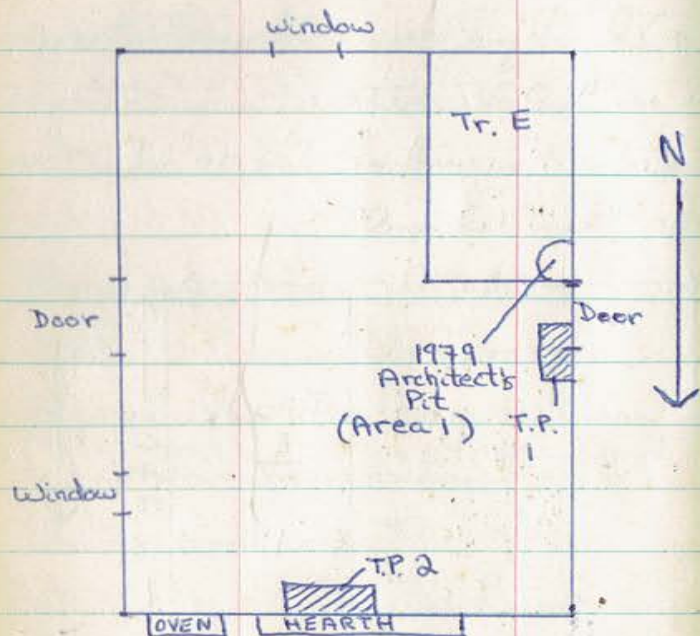 window
Tr. E
N
Door
Door
1979
Architect's
Pit
(Area 1)
T.P.
1
Window
T.P. 2
OVEN
HEARTH